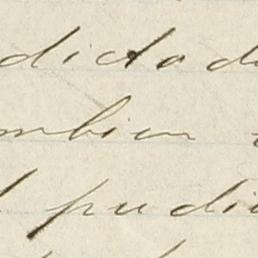 dictad
mbien
pudi